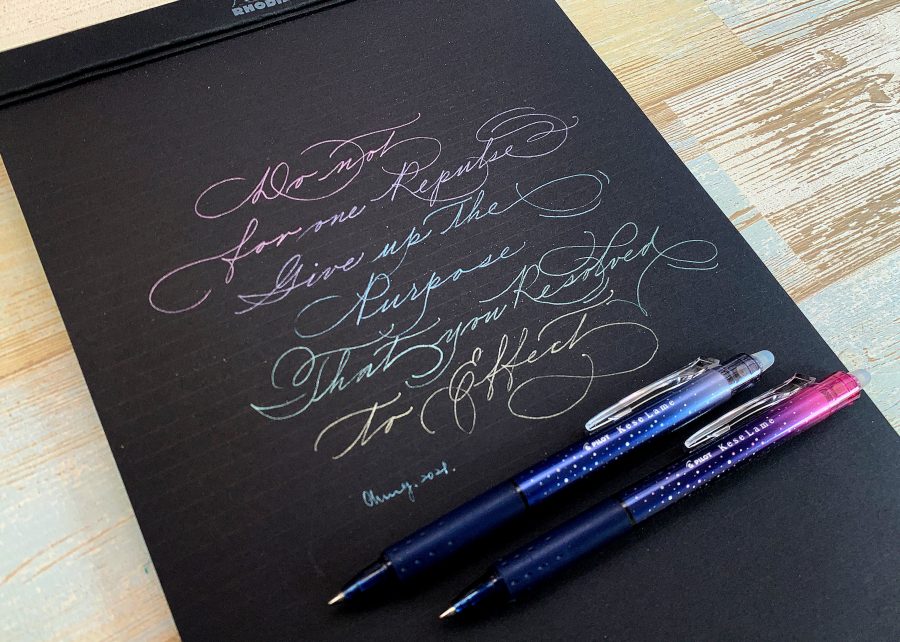 RHODIA
Do not
for one Repulse
Give up the
Purpose
That you Resolved
To Effect
2021.
PILOT Kese Lame
PILOT Kese Lame